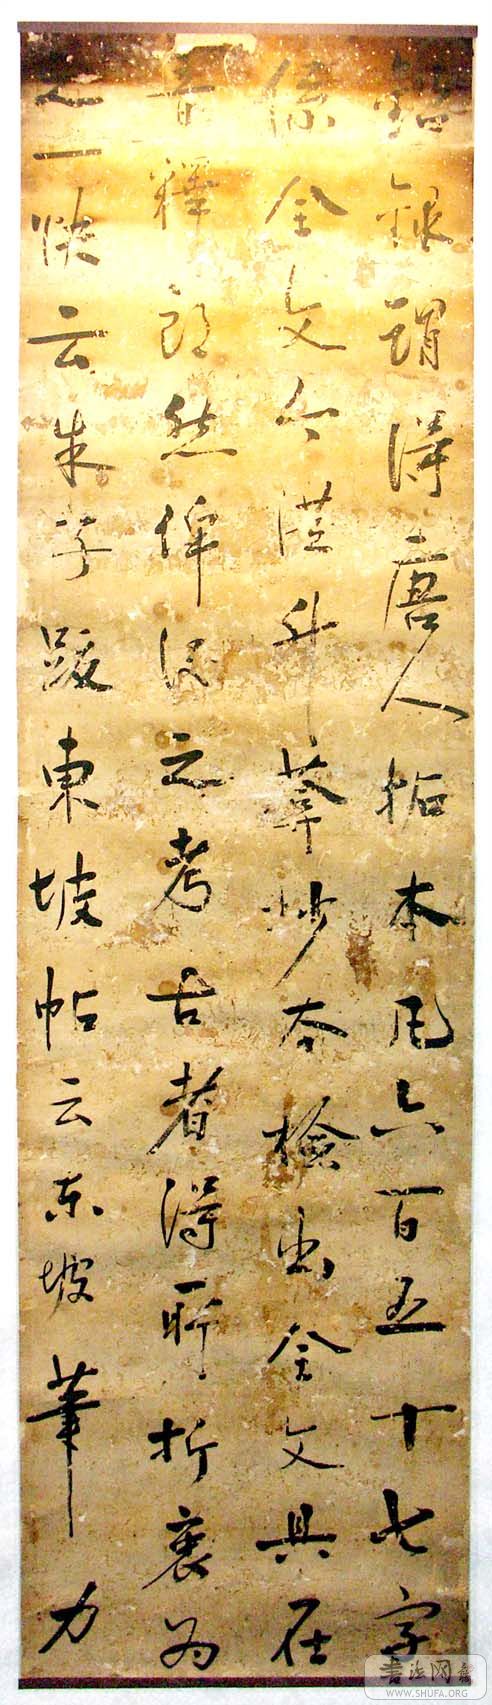 鉛録謂得唐人拓本凡六百五十七字
係全文今從升菴抄本檢出全文具在
音釋朗然俾後之考古者得所折衷為
之一快云朱子跋東坡帖云東坡筆力
書法网
WWW.SHUFA.ORG